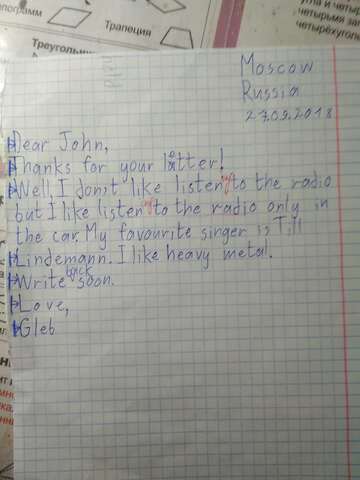 Трапеция
Треуголь
четырьмя
четырёхугол
Moscow
Russia
27.09.2018
Dear John,
Thanks for your letter!
Well, I don't like listening to the radio
but I like listening to the radio only in
the car. My favourite singer is Till
Lindemann. I like heavy metal.
Write back soon.
Love,
Gleb